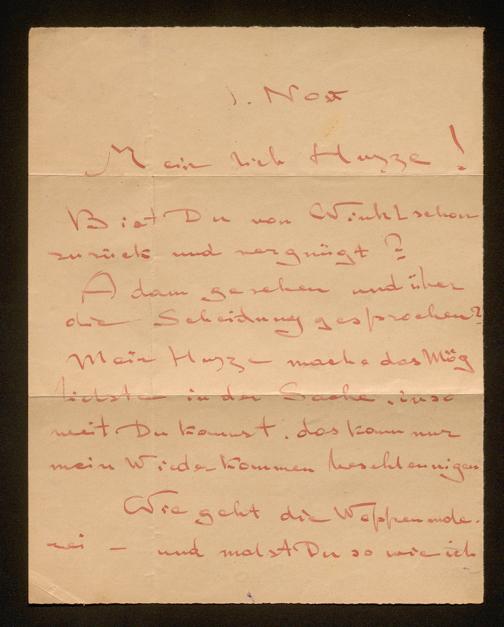 1. Nov
Mein lieb Huzze!
Bist Du von Winkl schon
zurück und vergnügt?
Adam gesehen und über
die Scheidung gesprochen?
Mein Huzze mache das Mög
lichste in der Sache, inso
weit Du kannst. das kann nur
mein Wiederkommen beschleunigen
Wie geht die Wappenmale-
rei – und malst Du so wie ich